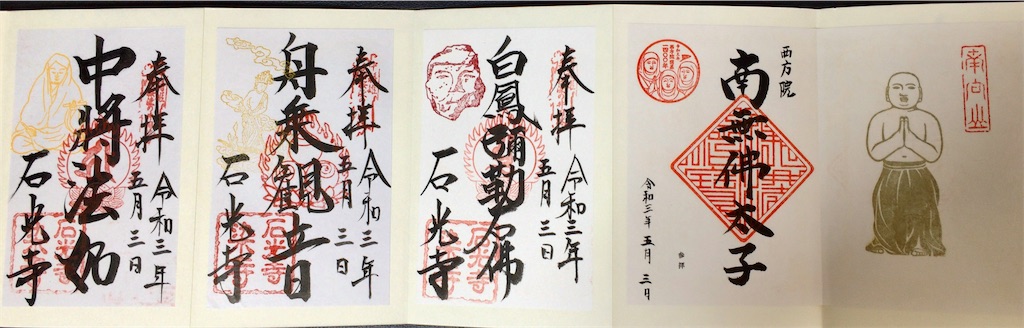 南向山
西方院
南無佛太子
令和三年 五月 三日
参拝
奉拝
令和三年
五月三日
白鳳彌勒石佛
石光寺
石光寺
奉拝
令和三年
五月三日
舟乗観音
石光寺
石光寺
奉拝
令和三年
五月三日
中將法如
石光寺
石光寺